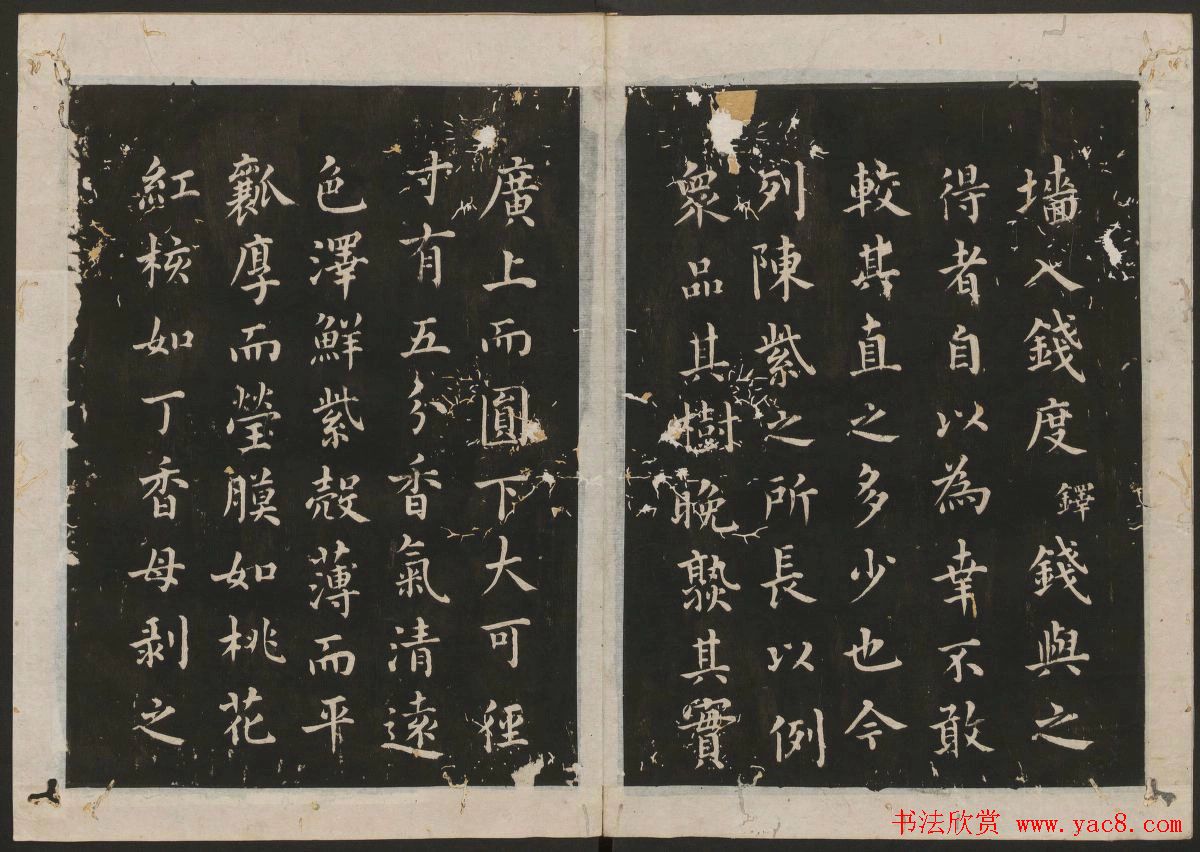 墻入錢度鐸錢與之
得者自以為幸不敢
較其直之多少也今
列陳紫之所長以例
衆品其樹晚熟其實
廣上而圓下大可徑
寸有五分香氣清遠
色澤鮮紫殼薄而平
瓤厚而瑩膜如桃花
紅核如丁香母剥之
书法欣赏 www.yac8.com